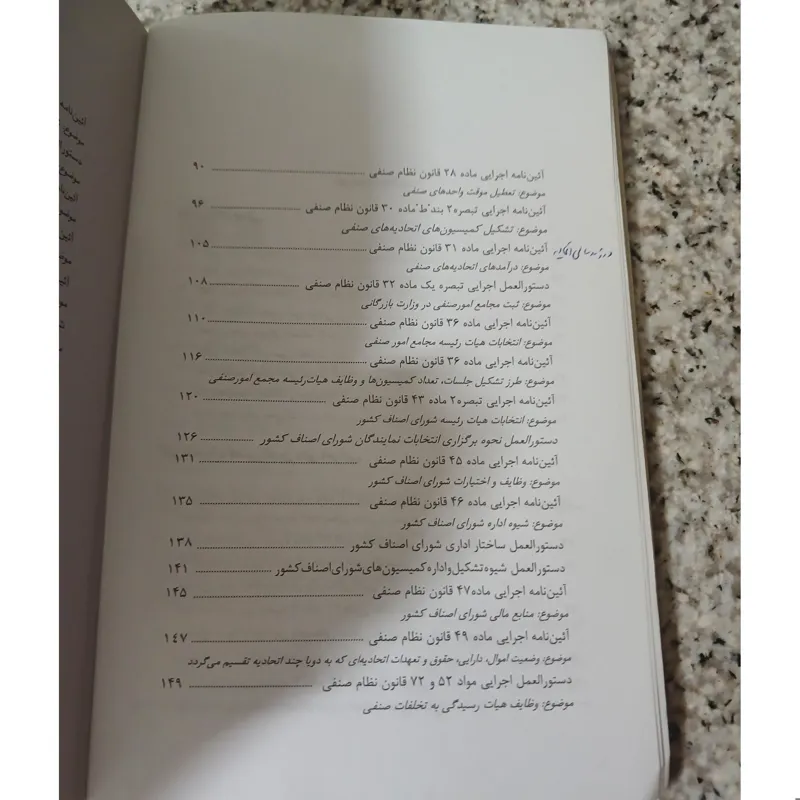 آئین‌نامه اجرایی ماده ۲۸ قانون نظام صنفی ........ ۹۰
موضوع: تعطیل موقت واحدهای صنفی
آئین‌نامه اجرایی تبصره۲ بند"ط"ماده ۳۰ قانون نظام صنفی ........ ۹۶
موضوع: تشکیل کمیسیون‌های اتحادیه‌های صنفی
آئین‌نامه اجرایی ماده ۳۱ قانون نظام صنفی ........ ۱۰۵
موضوع: درآمدهای اتحادیه‌های صنفی
دستورالعمل اجرایی تبصره یک ماده ۳۲ قانون نظام صنفی ........ ۱۰۸
موضوع: ثبت مجامع امورصنفی در وزارت بازرگانی
آئین‌نامه اجرایی ماده ۳۶ قانون نظام صنفی ........ ۱۱۰
موضوع: انتخابات هیات رئیسه مجامع امور صنفی
آئین‌نامه اجرایی ماده ۳۶ قانون نظام صنفی ........ ۱۱۶
موضوع: طرز تشکیل جلسات، تعداد کمیسیون‌ها و وظایف هیات‌رئیسه مجمع امورصنفی
آئین‌نامه اجرایی تبصره۲ ماده ۴۳ قانون نظام صنفی ........ ۱۲۰
موضوع: انتخابات هیات رئیسه شورای اصناف کشور
دستورالعمل نحوه برگزاری انتخابات نمایندگان شورای اصناف کشور ........ ۱۲۶
آئین‌نامه اجرایی ماده ۴۵ قانون نظام صنفی ........ ۱۳۱
موضوع: وظایف و اختیارات شورای اصناف کشور
آئین‌نامه اجرایی ماده ۴۶ قانون نظام صنفی ........ ۱۳۵
موضوع: شیوه اداره شورای اصناف کشور
دستورالعمل ساختار اداری شورای اصناف کشور ........ ۱۳۸
دستورالعمل شیوه تشکیل و اداره کمیسیون‌های شورای اصناف کشور ........ ۱۴۱
آئین‌نامه اجرایی ماده۴۷ قانون نظام صنفی ........ ۱۴۵
موضوع: منابع مالی شورای اصناف کشور
آئین‌نامه اجرایی ماده ۴۹ قانون نظام صنفی ........ ۱۴۷
موضوع: وضعیت اموال، دارایی، حقوق و تعهدات اتحادیه‌ای که به دویا چند اتحادیه تقسیم می‌گردد
دستورالعمل اجرایی مواد ۵۲ و ۷۲ قانون نظام صنفی ........ ۱۴۹
موضوع: وظایف هیات رسیدگی به تخلفات صنفی